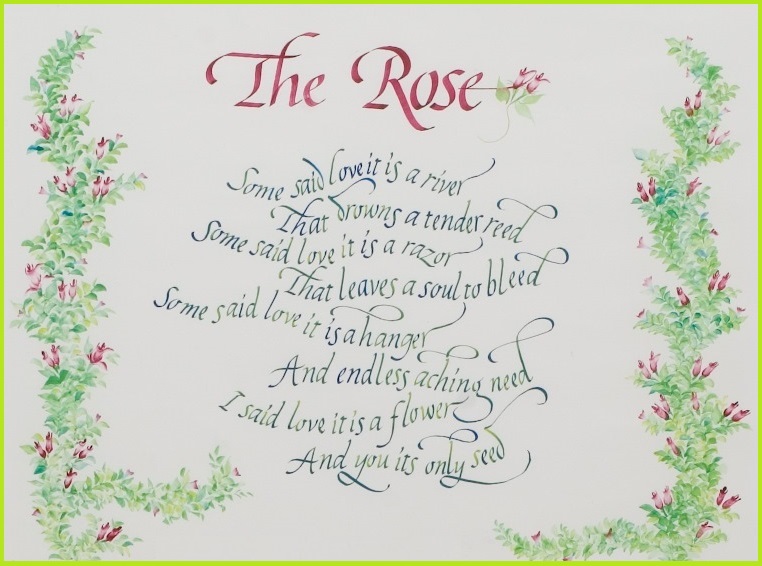 The Rose
Some said love it is a river
That drowns a tender reed
Some said love it is a razor
That leaves a soul to bleed
Some said love it is a hanger
And endless aching need
I said love it is a flower
And you its only seed